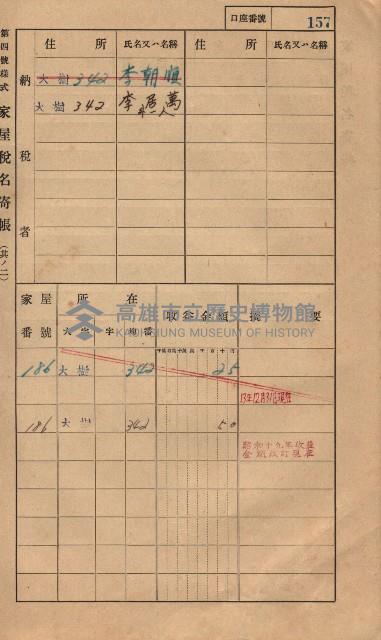 口座番號 157
第四號樣式 家屋稅名寄帳 (其ノ二)
納稅者
住所 氏名又ハ名稱 住所 氏名又ハ名稱
大樹 342 李朝順
大樹 342 李居萬
家屋番號 所在 收益金額 摘要
大字 字 地番
高雄市立歷史博物館
KAOHSIUNG MUSEUM OF HISTORY
186 大樹 342 25
13年12月31日現在
186 大樹 342 50
昭和十九年收益
金額改訂現在